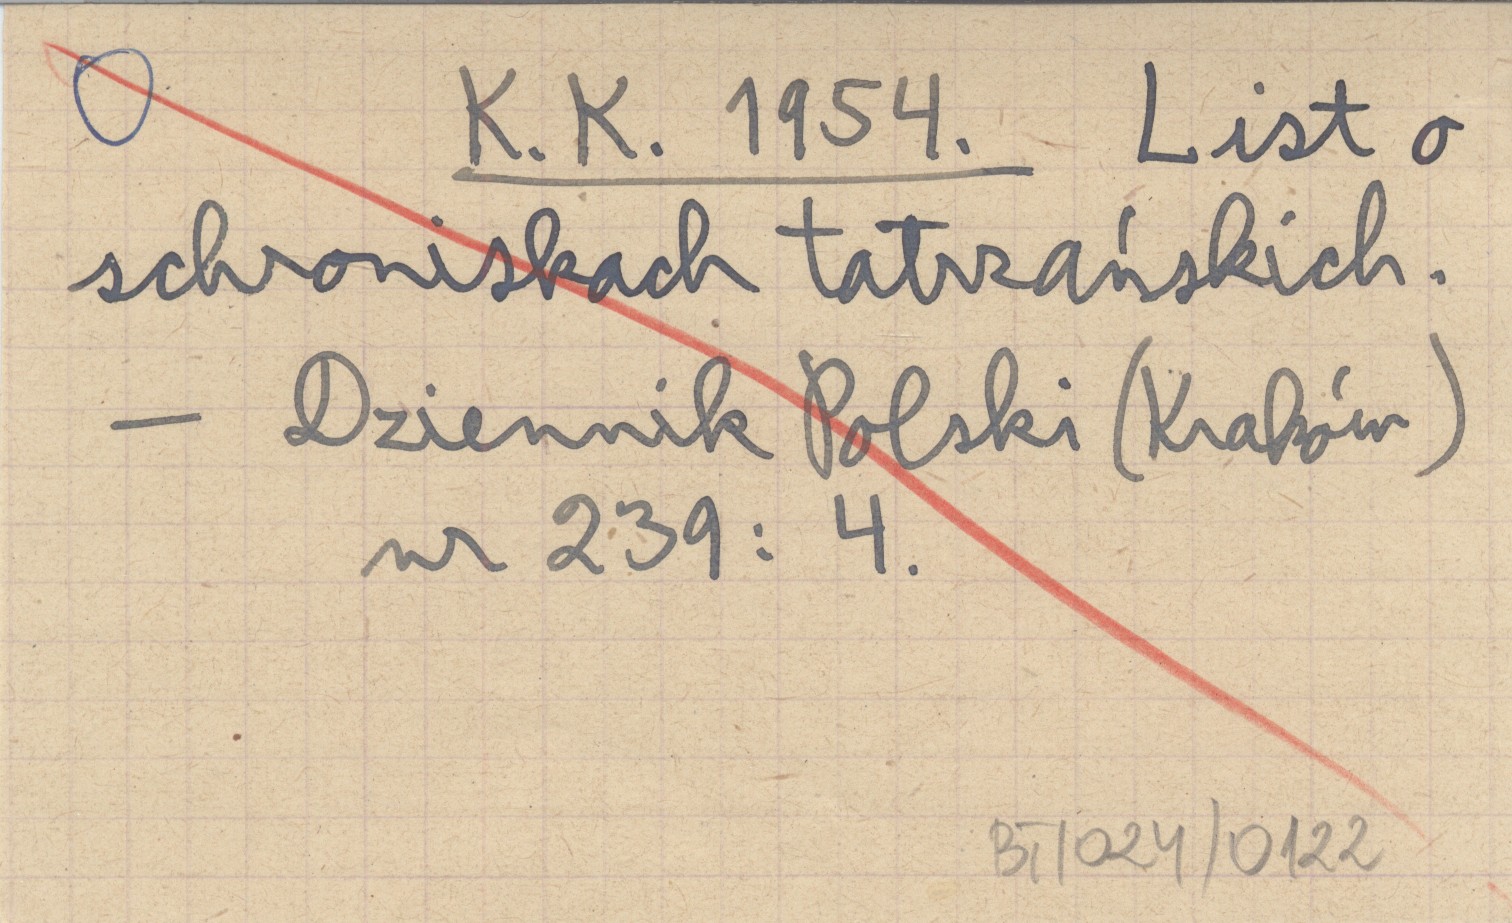 K.K. 1954. List o
schroniskach tatrzańskich.
— Dziennik Polski (Kraków)
nr 239: 4.
BT/024/0122